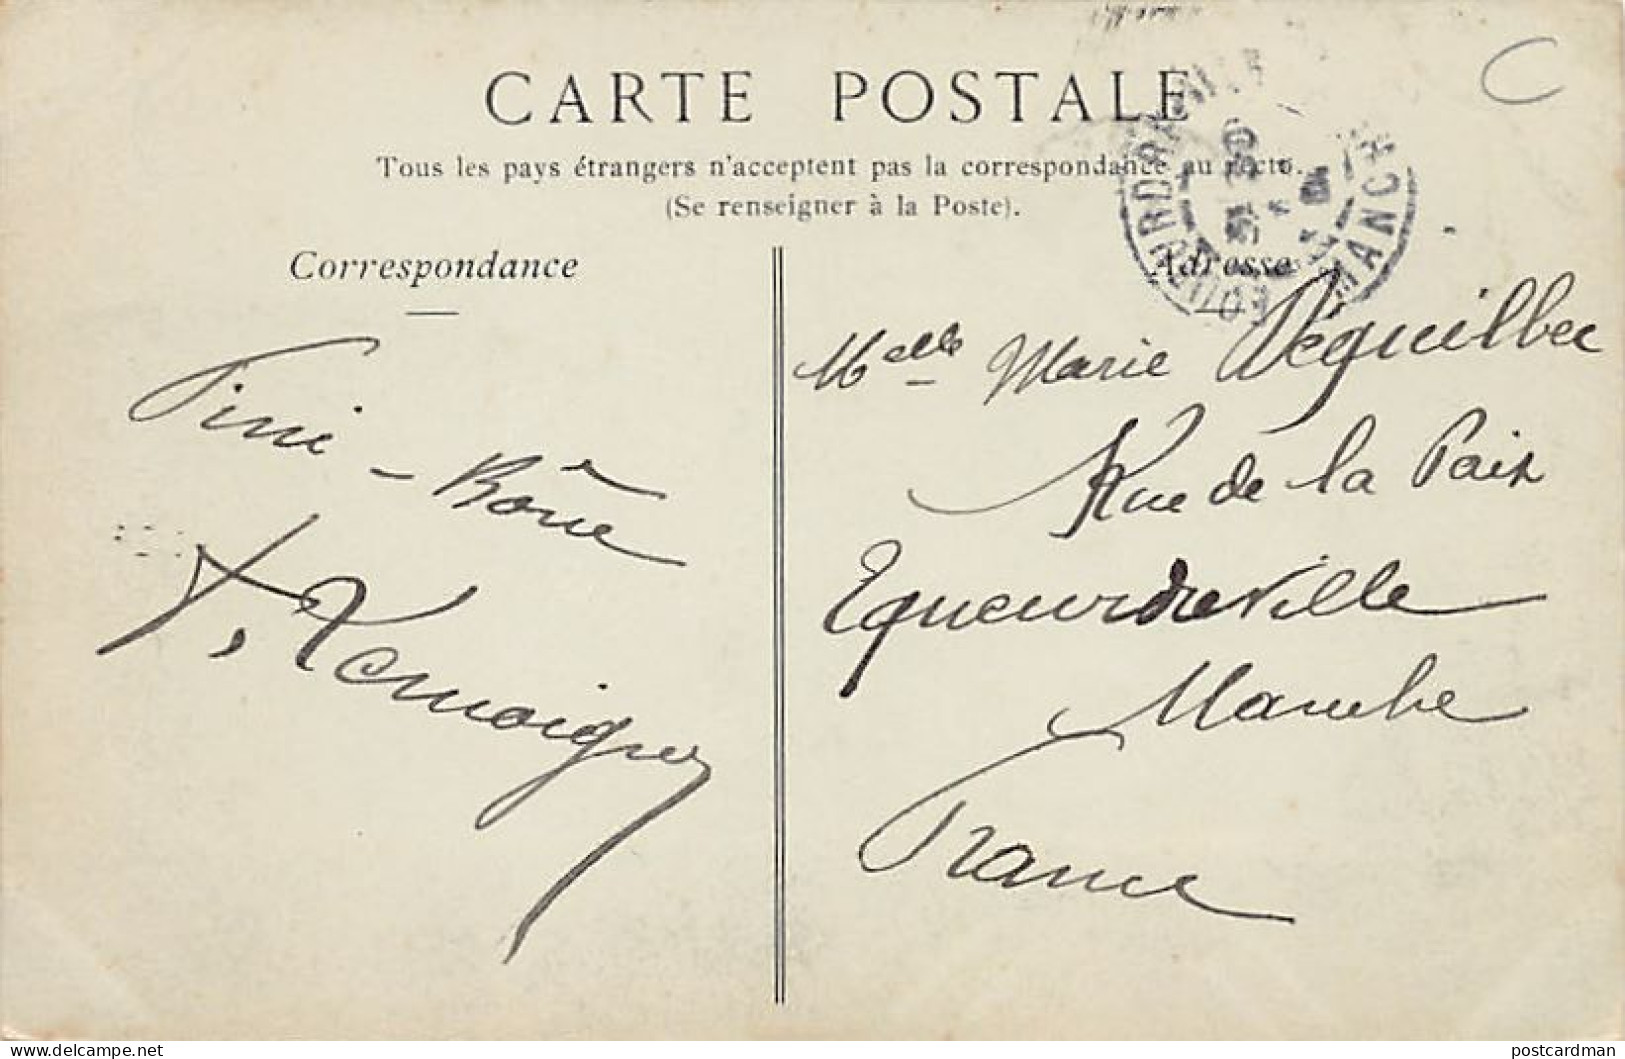 CARTE POSTALE
Tous les pays étrangers n'acceptent pas la correspondance au recto.
(Se renseigner à la Poste).
Correspondance
Adresse
Melle Marie
Rue de la Paix
Equeurdreville
Manche
France
MANCHE
C
www.delcampe.net
postcardman